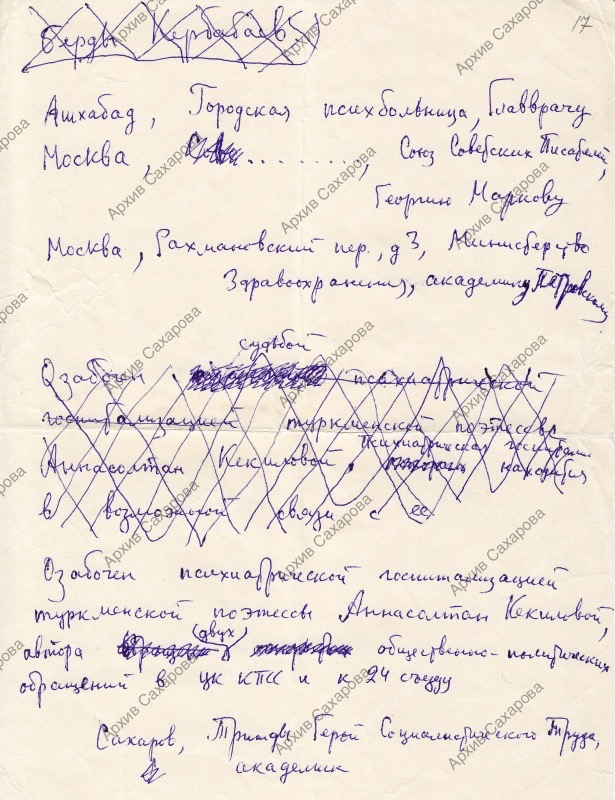 17
Берды Кербабаев
Ашхабад, Городская психбольница, Главврачу
Москва, ........., Союз Советских Писателей,
Георгию Маркову
Москва, Рахмановский пер., д 3, Министерство
Здравоохранения, академику Петровскому
судьбой
Озабочен психиатрической
госпитализацией туркменской поэтессы
Психиатрическая госпитали-
Аннасолтан Кекиловой, находится
в возможной связи с ее
Озабочен психиатрической госпитализацией
туркменской поэтессы Аннасолтан Кекиловой,
(двух)
автора общественно-политических
обращений в ЦК КПСС и к 24 съезду
Сахаров, Трижды Герой Социалистического Труда,
академик
Архив Сахарова